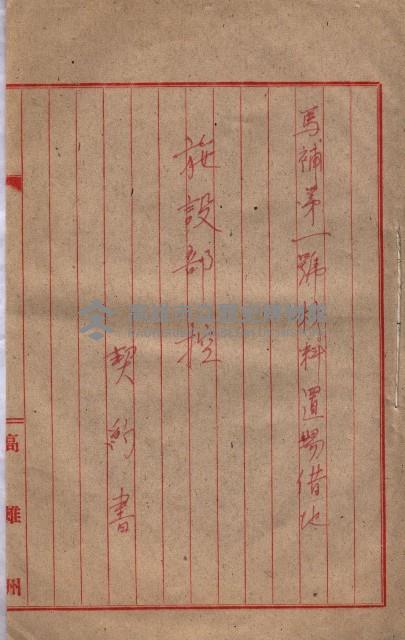 馬補第一號材料置場借地
施設部控
契約書
高雄州
高雄市立歷史博物館